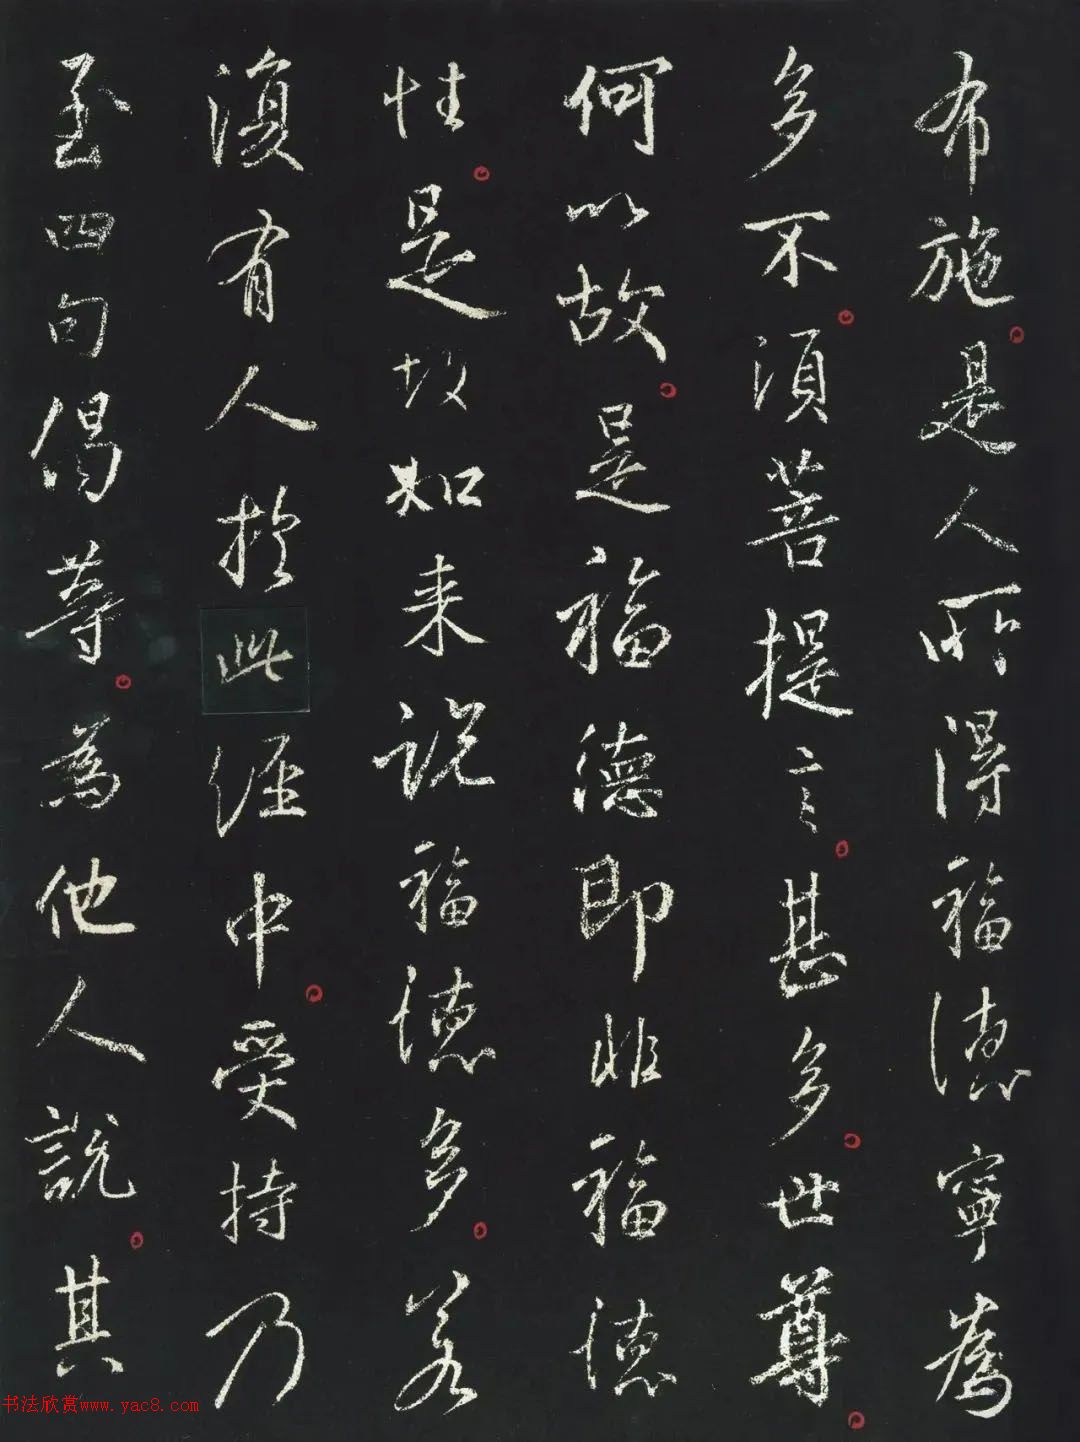 布施是人所得福德寧為
多不須菩提言甚多世尊
何以故是福德即非福德
性是故如来說福德多若
復有人於此經中受持乃
至四句偈等為他人說其
书法欣赏www.yac8.com